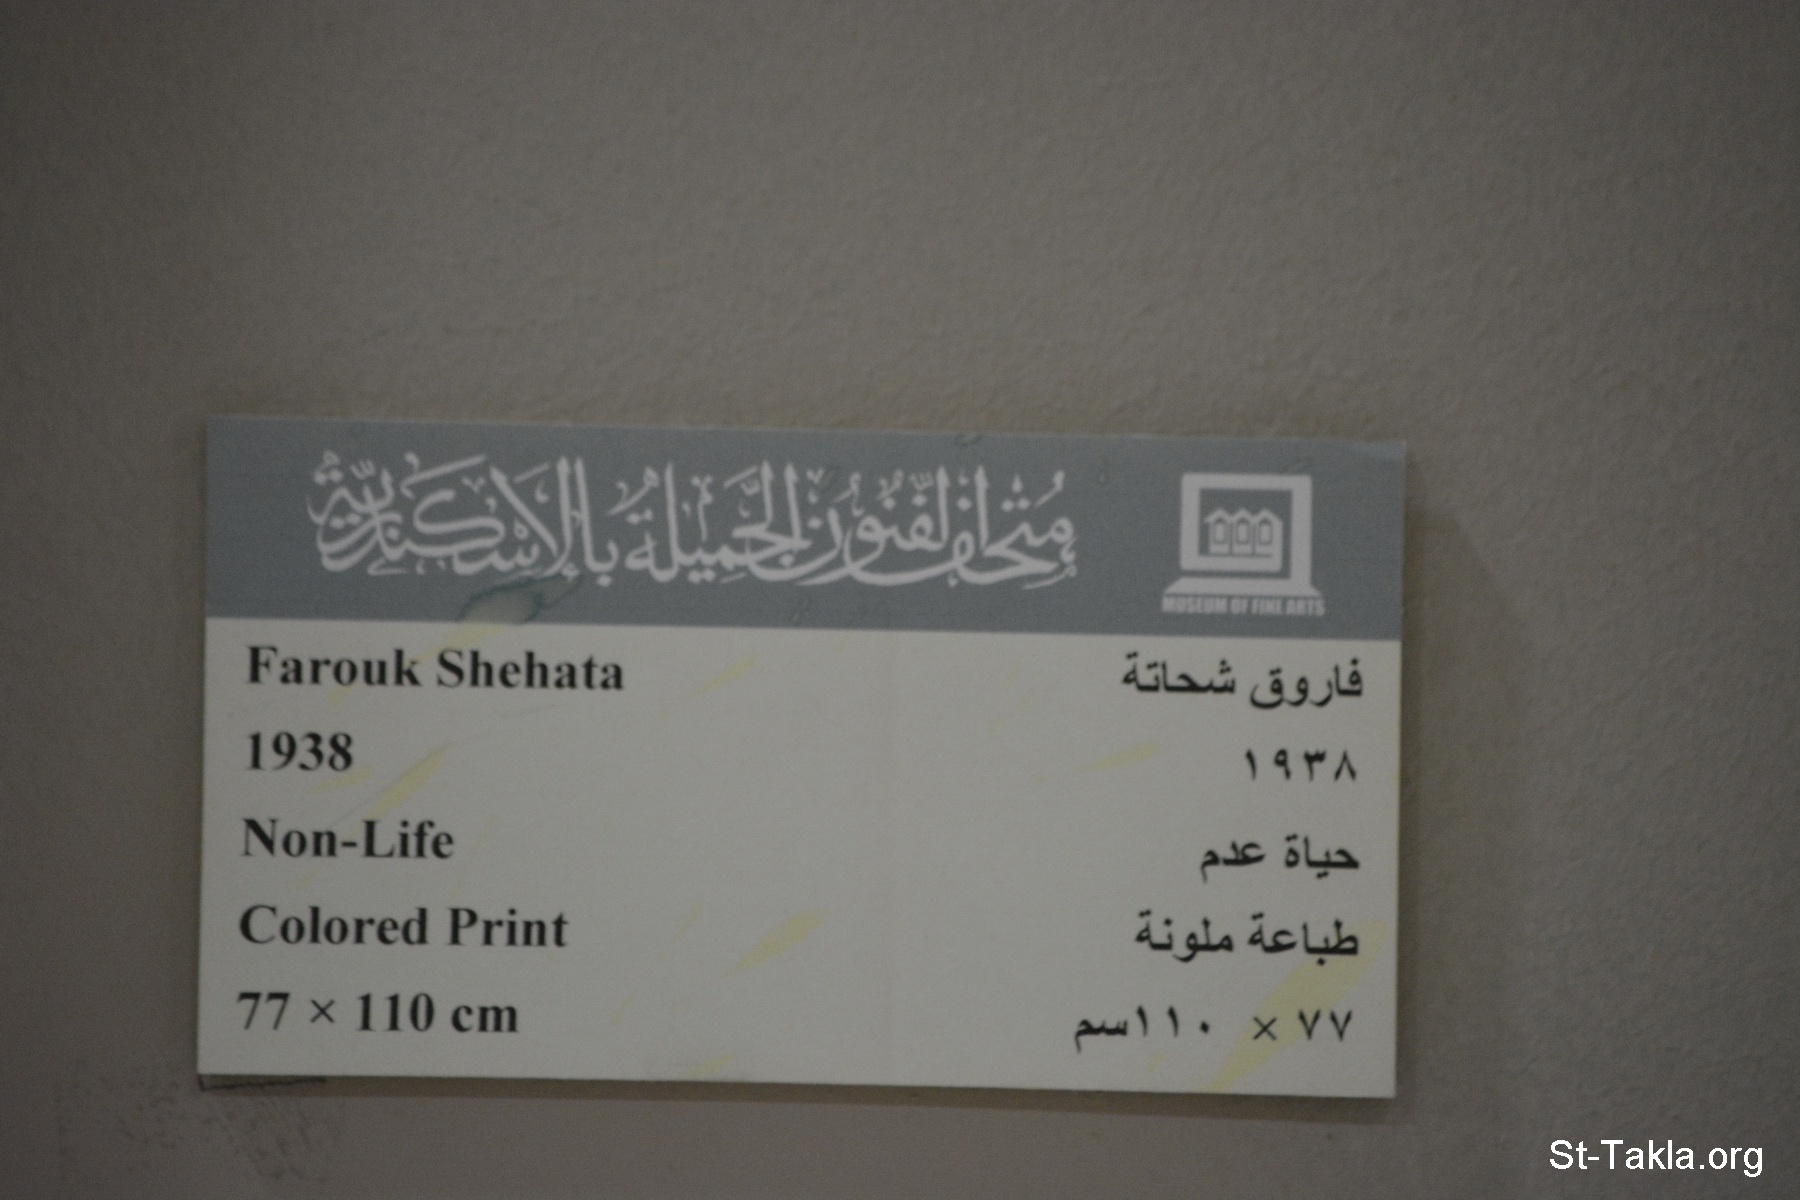 مُتْحَفُ الفُنُونِ الجَمِيلَةِ بِالإِسْكَنْدَرِيَّةِ
MUSEUM OF FINE ARTS
Farouk Shehata
فاروق شحاتة
1938
١٩٣٨
Non-Life
حياة عدم
Colored Print
طباعة ملونة
77 × 110 cm
٧٧ × ١١٠سم
St-Takla.org